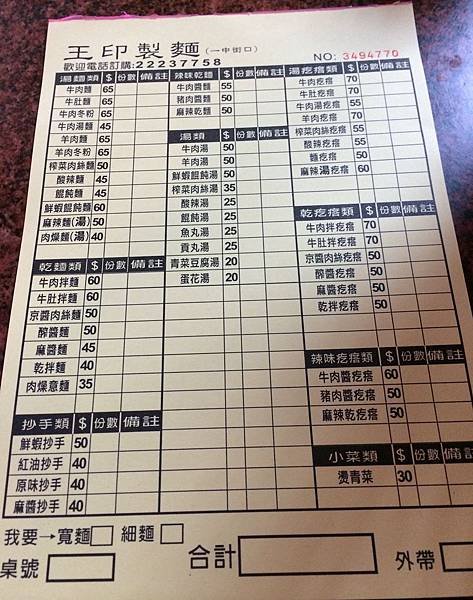 王印製麵(一中街口)
歡迎電話訂購:22237758
NO: 3494770
湯麵類 $ 份數 備註
牛肉麵 65
牛肚麵 65
牛肉冬粉 65
牛肉湯麵 45
羊肉麵 65
羊肉冬粉 65
榨菜肉絲麵 50
酸辣麵 45
餛飩麵 45
鮮蝦餛飩麵 60
麻辣麵(湯) 50
肉燥麵(湯) 40
乾麵類 $ 份數 備註
牛肉拌麵 60
牛肚拌麵 60
京醬肉絲麵 50
醡醬麵 50
麻醬麵 45
乾拌麵 40
肉燥意麵 35
抄手類 $ 份數 備註
鮮蝦抄手 50
紅油抄手 40
原味抄手 40
麻醬抄手 40
辣味乾麵 $ 份數 備註
牛肉醬麵 55
豬肉醬麵 50
麻辣乾麵 50
湯類 $ 份數 備註
牛肉湯 50
羊肉湯 50
鮮蝦餛飩湯 50
榨菜肉絲湯 35
酸辣湯 25
餛飩湯 25
魚丸湯 25
貢丸湯 25
青菜豆腐湯 20
蛋花湯 20
湯疙瘩類 $ 份數 備註
牛肉疙瘩 70
牛肚疙瘩 70
牛肉湯疙瘩 55
羊肉疙瘩 70
榨菜肉絲疙瘩 55
酸辣疙瘩 55
麵疙瘩 50
麻辣湯疙瘩 60
乾疙瘩類 $ 份數 備註
牛肉拌疙瘩 70
牛肚拌疙瘩 70
京醬肉絲疙瘩 50
醡醬疙瘩 50
麻醬疙瘩 50
乾拌疙瘩 50
辣味疙瘩類 $ 份數 備註
牛肉醬疙瘩 60
豬肉醬疙瘩 50
麻辣乾疙瘩 50
小菜類 $ 份數 備註
燙青菜 30
我要→寬麵 細麵
桌號 合計 外帶